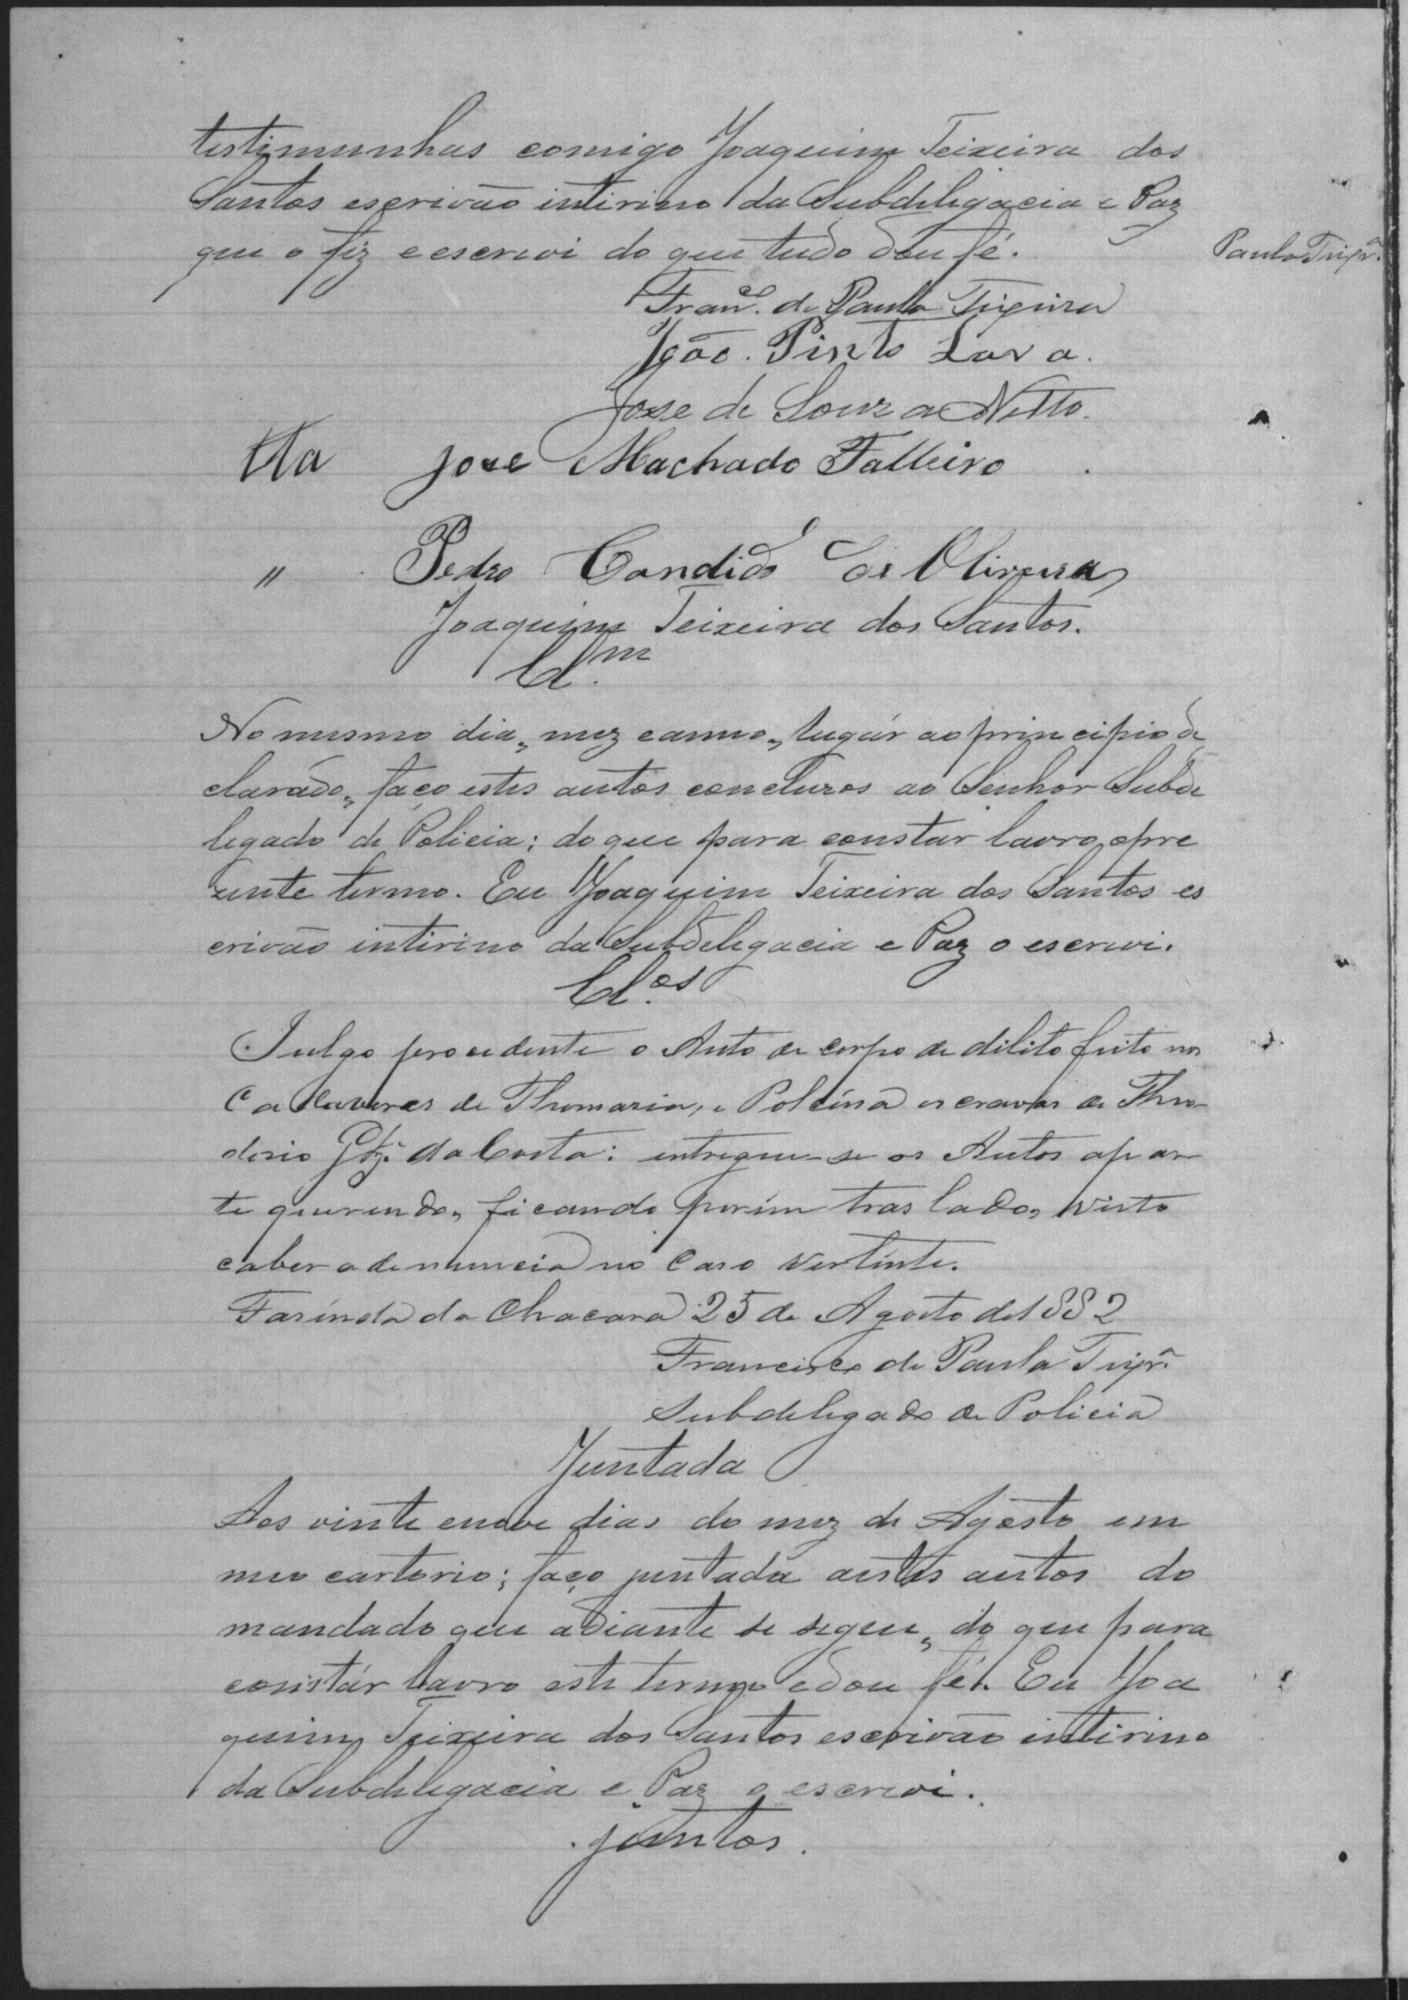 testimunhas comigo Joaquim Teixeira dos
Santos escrivão intirino da Subdeligacia e Paz
que o fiz e escrevi do que tudo dou fé.
Paula Teixrª
Franco. de Paula Teixeira
João. Pinto Lara.
Jose de Souza Netto.
Tta Jose Machado Falleiro
" Pedro Candido de Oliveira
Joaquim Teixeira dos Santos.
Cl.m
No mesmo dia, mez e anno, lugár ao principio de
clarádo, faço estes autos concluzos ao Senhor Subde
legado de Policia; do que para constár lavro o pre
zente termo. Eu Joaquim Teixeira dos Santos es
crivão intirino da Subdelegacia e Paz o escrevi.
Cl.os
Julgo procedente o Auto de corpo de dilito feito nos
Cadaveres de Thomazia, e Policina escravas de Theo
dosio da Costa: entregue-se os Autos a par
te querendo, ficando porém traslado, visto
caber a denuncia no caso vertente.
Fazenda da Chacara 25 de Agosto de 1882
Francisco de Paula Teixrª
Subdelegado de Policia
Juntada
Aos vinte e nove dias do mez de Agosto em
meu cartorio; faço juntada a estes autos do
mandado que adiante se segue, do que para
constár lavro este termo e dou fé. Eu Joa
quim Teixeira dos Santos escrivão intirino
da Subdelegacia e Paz o escrevi.
juntos.